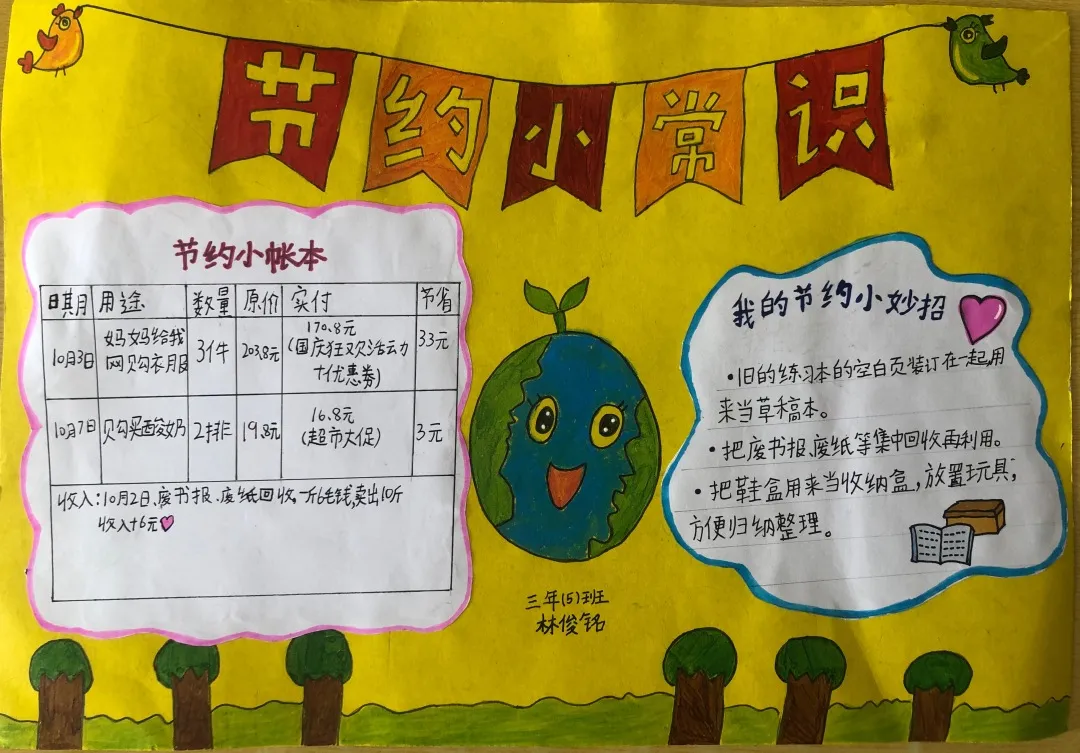 节约小常识
节约小帐本
日期月 用途 数量 原价 实付 节省
10月3日 妈妈给我网购衣服 3件 203.8元 170.8元(国庆狂欢活动+优惠券) 33元
10月7日 购买酸奶 2排 19.8元 16.8元(超市大促) 3元
收入:10月2日、废书报、废纸回收一斤6毛钱,卖出10斤
收入+6元
我的节约小妙招
•旧的练习本的空白页装订在一起,用
来当草稿本。
•把废书报、废纸等集中回收再利用。
•把鞋盒用来当收纳盒,放置玩具,
方便归纳整理。
三年(5)班
林俊铭